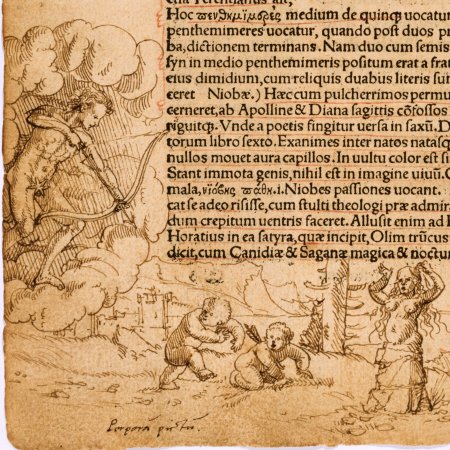 eft Terentianus est,
Hoc πενθημιμερὲς medium de quinq; uocatur
penthemimeres uocatur, quando post duos p
ba, dictionem terminans. Nam duo cum semis
fyn in medio penthemimeris positum erat a frat
eius dimidium, cum reliquis duabus literis sui
ceret Niobe.) Hæc cum pulcherrimos permu
cerneret, ab Apolline & Diana sagittis cõfossos
riguitq;. Vnde a poetis fingitur uersa in saxũ. D
torum libro sexto. Exanimes inter natos natasq;
nullos mouet aura capillos. In uultu color est si
Stant immota genis, nihil est in imagine uiuũ. C
mala, νιόβης πάθη .i. Niobes passiones uocant.
cat se adeo risisse, cum stulti theologi præ admira
dum crepitum uentris faceret. Allusit enim ad
Horatius in ea satyra, quæ incipit, Olim trũcus
dicit, cum Canidiæ & Saganæ magica & noctu